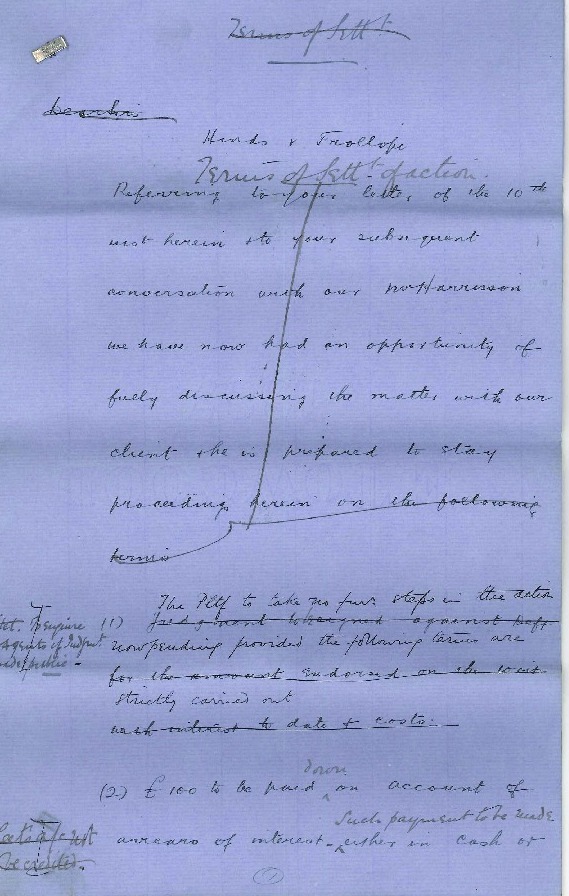 Terms of Settt
Dear Sirs
Hinds v Trollope
Terms of Settt of action.
Referring to your letter of the 10th
inst herein & to your subsequent
conversation with our Mr Harrison
we have now had an opportunity of
fully discussing the matter with our
client & he is prepared to stay
proceedings herein on the following
terms
The Pltf to take no furr steps in the action
(1) Judgment to be signed against Deft
now pending provided the following terms are
for the amount endorsed on the writ
strictly carried out
with interest to date & costs.
down
(2) £100 to be paid on account of
Such payment to be made
arrears of interest - either in cash or